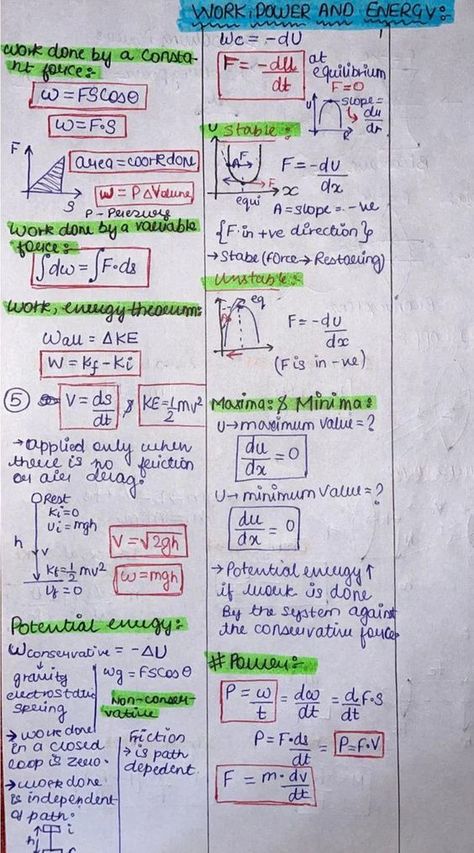 WORK, POWER AND ENERGY:
Work done by a consta-
nt force:-
W = FSCosθ
W = F·S
F
S
area = work done
W = PΔVolume
Work done by a variable
force:-
∫dw = ∫F·ds
Work, energy theorem:
Wall = ΔKE
W = Kf - Ki
⑤
V = ds/dt & KE = 1/2 mv²
→ applied only when
there is no friction
or air drag.
Rest
Ki = 0
Ui = mgh
h
v
Kf = 1/2 mv²
Uf = 0
V = √2gh
W = mgh
Potential energy:
Wconservative = -ΔU
gravity
electrostatic
spring
→ work done
in a closed
loop is zero.
→ work done
is independent
of path:
h
i
wg = FSCosθ
Non-conser-
vative
Friction
→ is path
depedent
Wc = -dU
F = -dU/dt
at
equilibrium
F=0
U
slope =
du/dr
R
U Stable:
F
x
equi
F = -dU/dx
A = slope = -ve
{F in +ve direction}
→ Stabe (force → Restoring)
Unstable:
eq
F = -dU/dx
(F is in -ve)
Maxima: & Minima:
U → maximum value = ?
du/dx = 0
U → minimum value = ?
du/dx = 0
→ Potential energy ↑
if work is done
By the system against
the conservative force
# Power:-
P = w/t = dw/dt = d/dt F·S
P = F·ds/dt = P = F·V
F = m·dv/dt